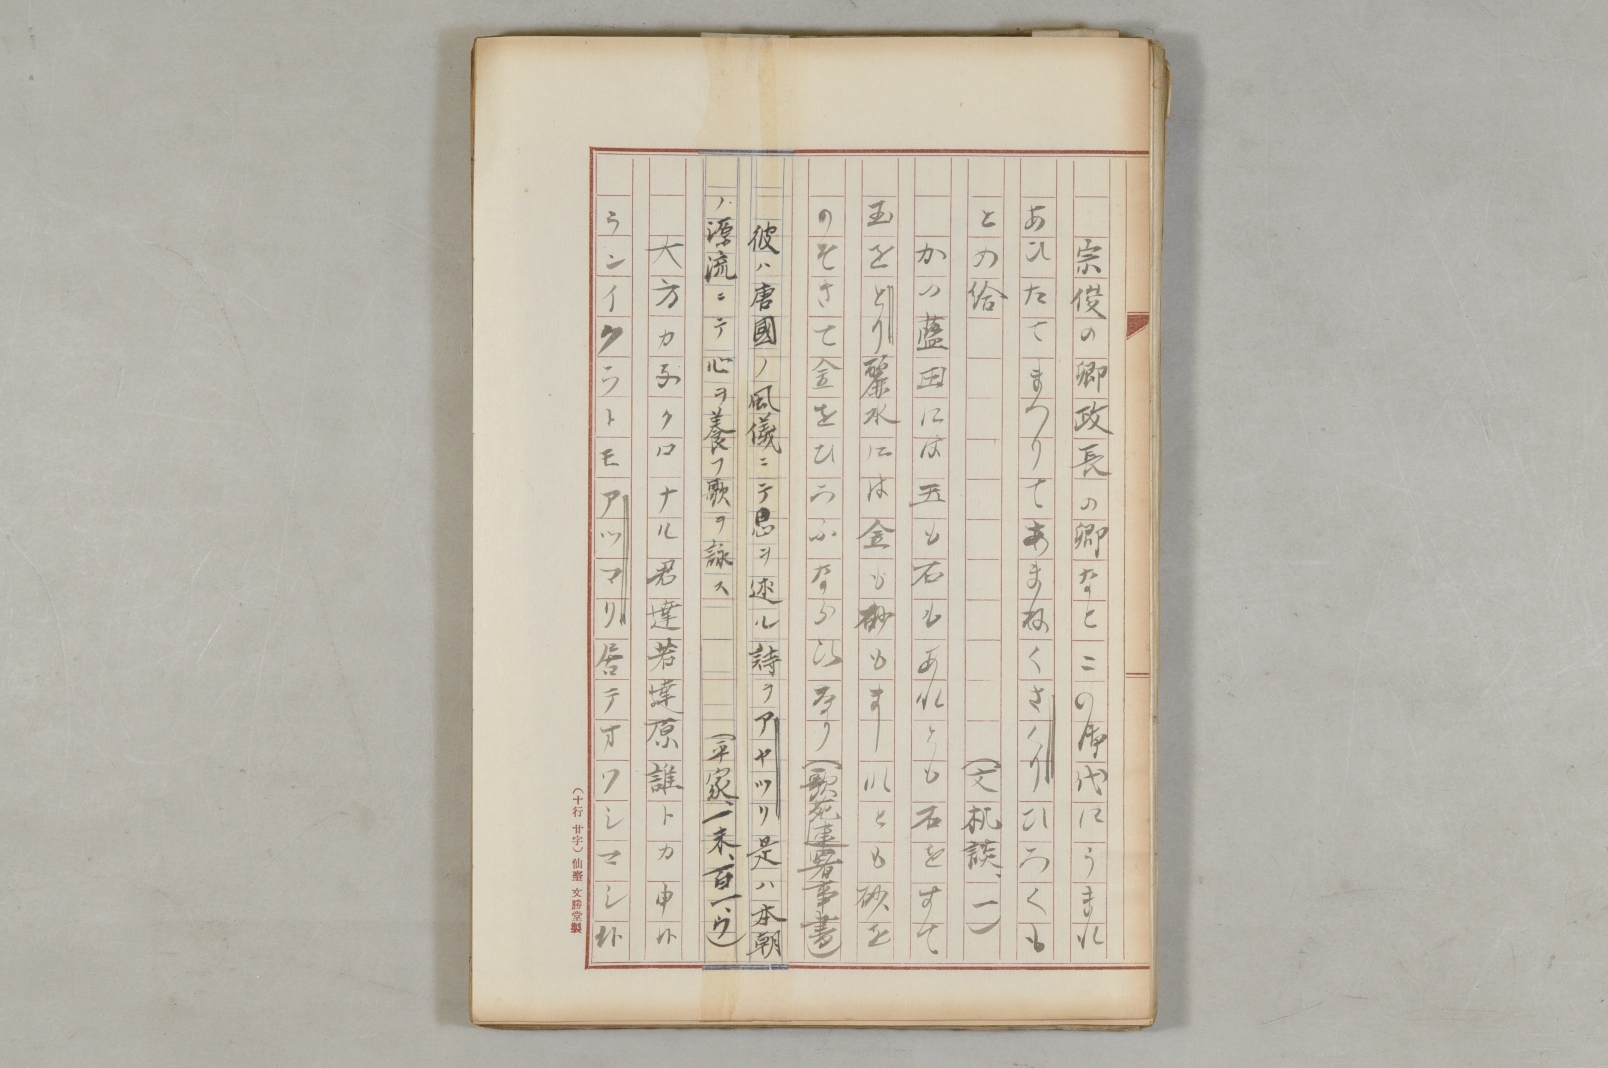 宗俊の卿政長の卿なとこの御代にうまれ
あひたてまつりてあまねくさハりひろくも
との給（文机談、一）
かの藍田には玉も石もあれとも石をすて
玉をとり麗水には金も砂もましれとも砂を
のそきて金をひろふならひなり（歌苑連署事書）
彼ハ唐國ノ風儀ニテ思ヲ述ル詩ヲアヤツリ是ハ本朝
ノ源流ニテ心ヲ養フ歌ヲ詠ス（平家、一末、百一、ウ）
大方カヲクロナル君達若達原誰トカ申ハ
ランイクラトモアツマリ居テオワシマシケ
（十行 廿字）仙臺 文勝堂製